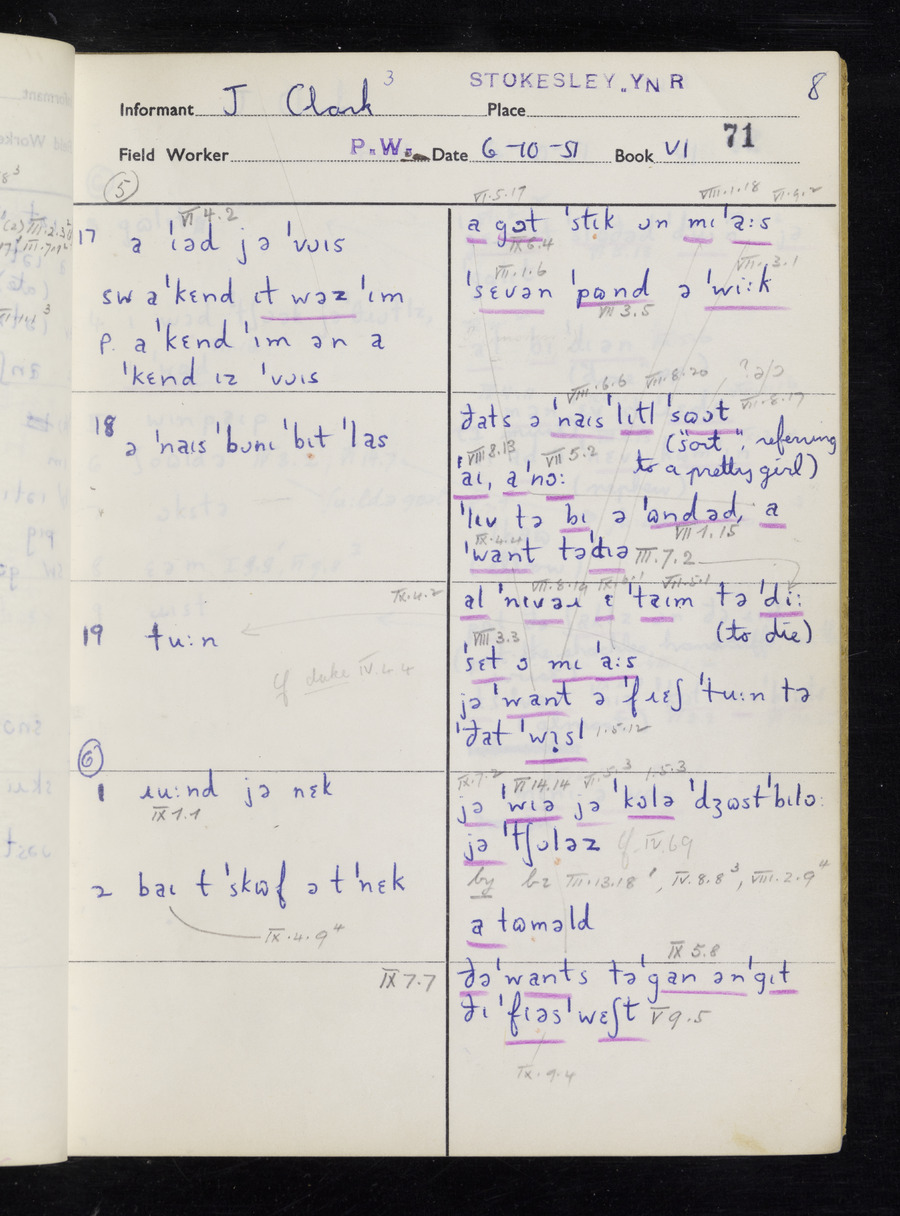 3
STOKESLEY. YNR
8
Informant J Clark
Place
Field Worker P.W. Date 6-10-51 Book VI 71
5
VI.5.17 VIII.1.18 VI.9.2
VI 4.2
17 a ˈɪəd jə ˈvɔɪs
sw a ˈkɛnd ɪt wəz ˈɪm
p. a ˈkɛnd ˈɪm ən a
ˈkɛnd ɪz ˈvɔɪs
a gɔt ˈstɪk ɒn mɪ ˈa:s
IX 6.4
VII.1.6 VII.3.1
ˈsɛvən ˈpɷnd ə ˈwi:k
VII 3.5
18 ə ˈnaɪs ˈbɒnɪ ˈbɪt ˈlas
VIII.6.6 VII.8.20 VII.8.17
ðats ə ˈnaɪs ˈlɪtl ˈsɔət
("sort" referring
to a pretty girl)
VIII 8.13 VII 5.2
ˈaɪ, a ˈnɔ:
ˈlɪv tə bɪ ə ˈɷndəd, a
VII 1.15
IX.4.4
ˈwant təˈdɪə III.7.2
19 tu:n
IX.4.2
cf duke IV.4.4
VII.8.14 VII.5.1
al ˈnɪvəɹ ɛ ˈtaɪm tə ˈdi:
(to die)
VIII 3.3
ˈsɛt ɔ mɪ ˈa:s
jə ˈwant ə ˈfɹɛʃ ˈtu:n tə
ˈðat ˈwɪsl 1.5.12
6
1 ɹu:nd jə nɛk
IX 1.1
IX.7.2 VI 14.14 VI.5.3 1.5.3
jə ˈwɪə jə ˈkɒlə ˈdʒɷst ˈbɪlɔ:
jə ˈtʃɒləz cf IV.69
2 baɪ t ˈskɷf ə t ˈnɛk
IX.4.9⁴
by bɪ III.13.18 ¹, IV.8.8³, VIII.2.9⁴
a tɷməld
IX 7.7
IX 5.8
ðə ˈwants tə ˈgan ən ˈgɪt
ðɪ ˈfɪəs ˈwɛʃt V 9.5
IX.9.4